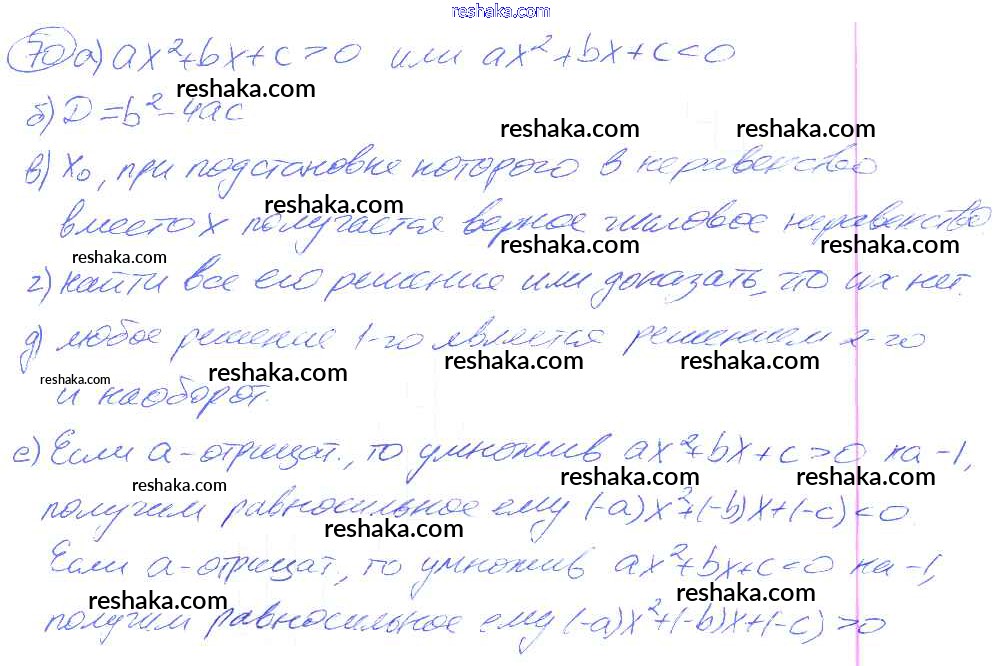 reshaka.com
70 а) ax²+bx+c>0 или ax²+bx+c<0
reshaka.com
б) D=b²-4ac
reshaka.com reshaka.com
в) x₀, при подстановке которого в неравенство
reshaka.com
вместо x получается верное числовое неравенство
reshaka.com reshaka.com reshaka.com
г) найти все его решения или доказать, что их нет.
д) любое решение 1-го является решением 2-го
reshaka.com reshaka.com reshaka.com reshaka.com
и наоборот.
е) Если a-отрицат., то умножив ax²+bx+c>0 на -1,
reshaka.com reshaka.com reshaka.com
получим равносильное ему (-a)x²+(-b)x+(-c)<0.
reshaka.com
Если a-отрицат., то умножив ax²+bx+c<0 на -1,
reshaka.com reshaka.com
получим равносильное ему (-a)x²+(-b)x+(-c)>0